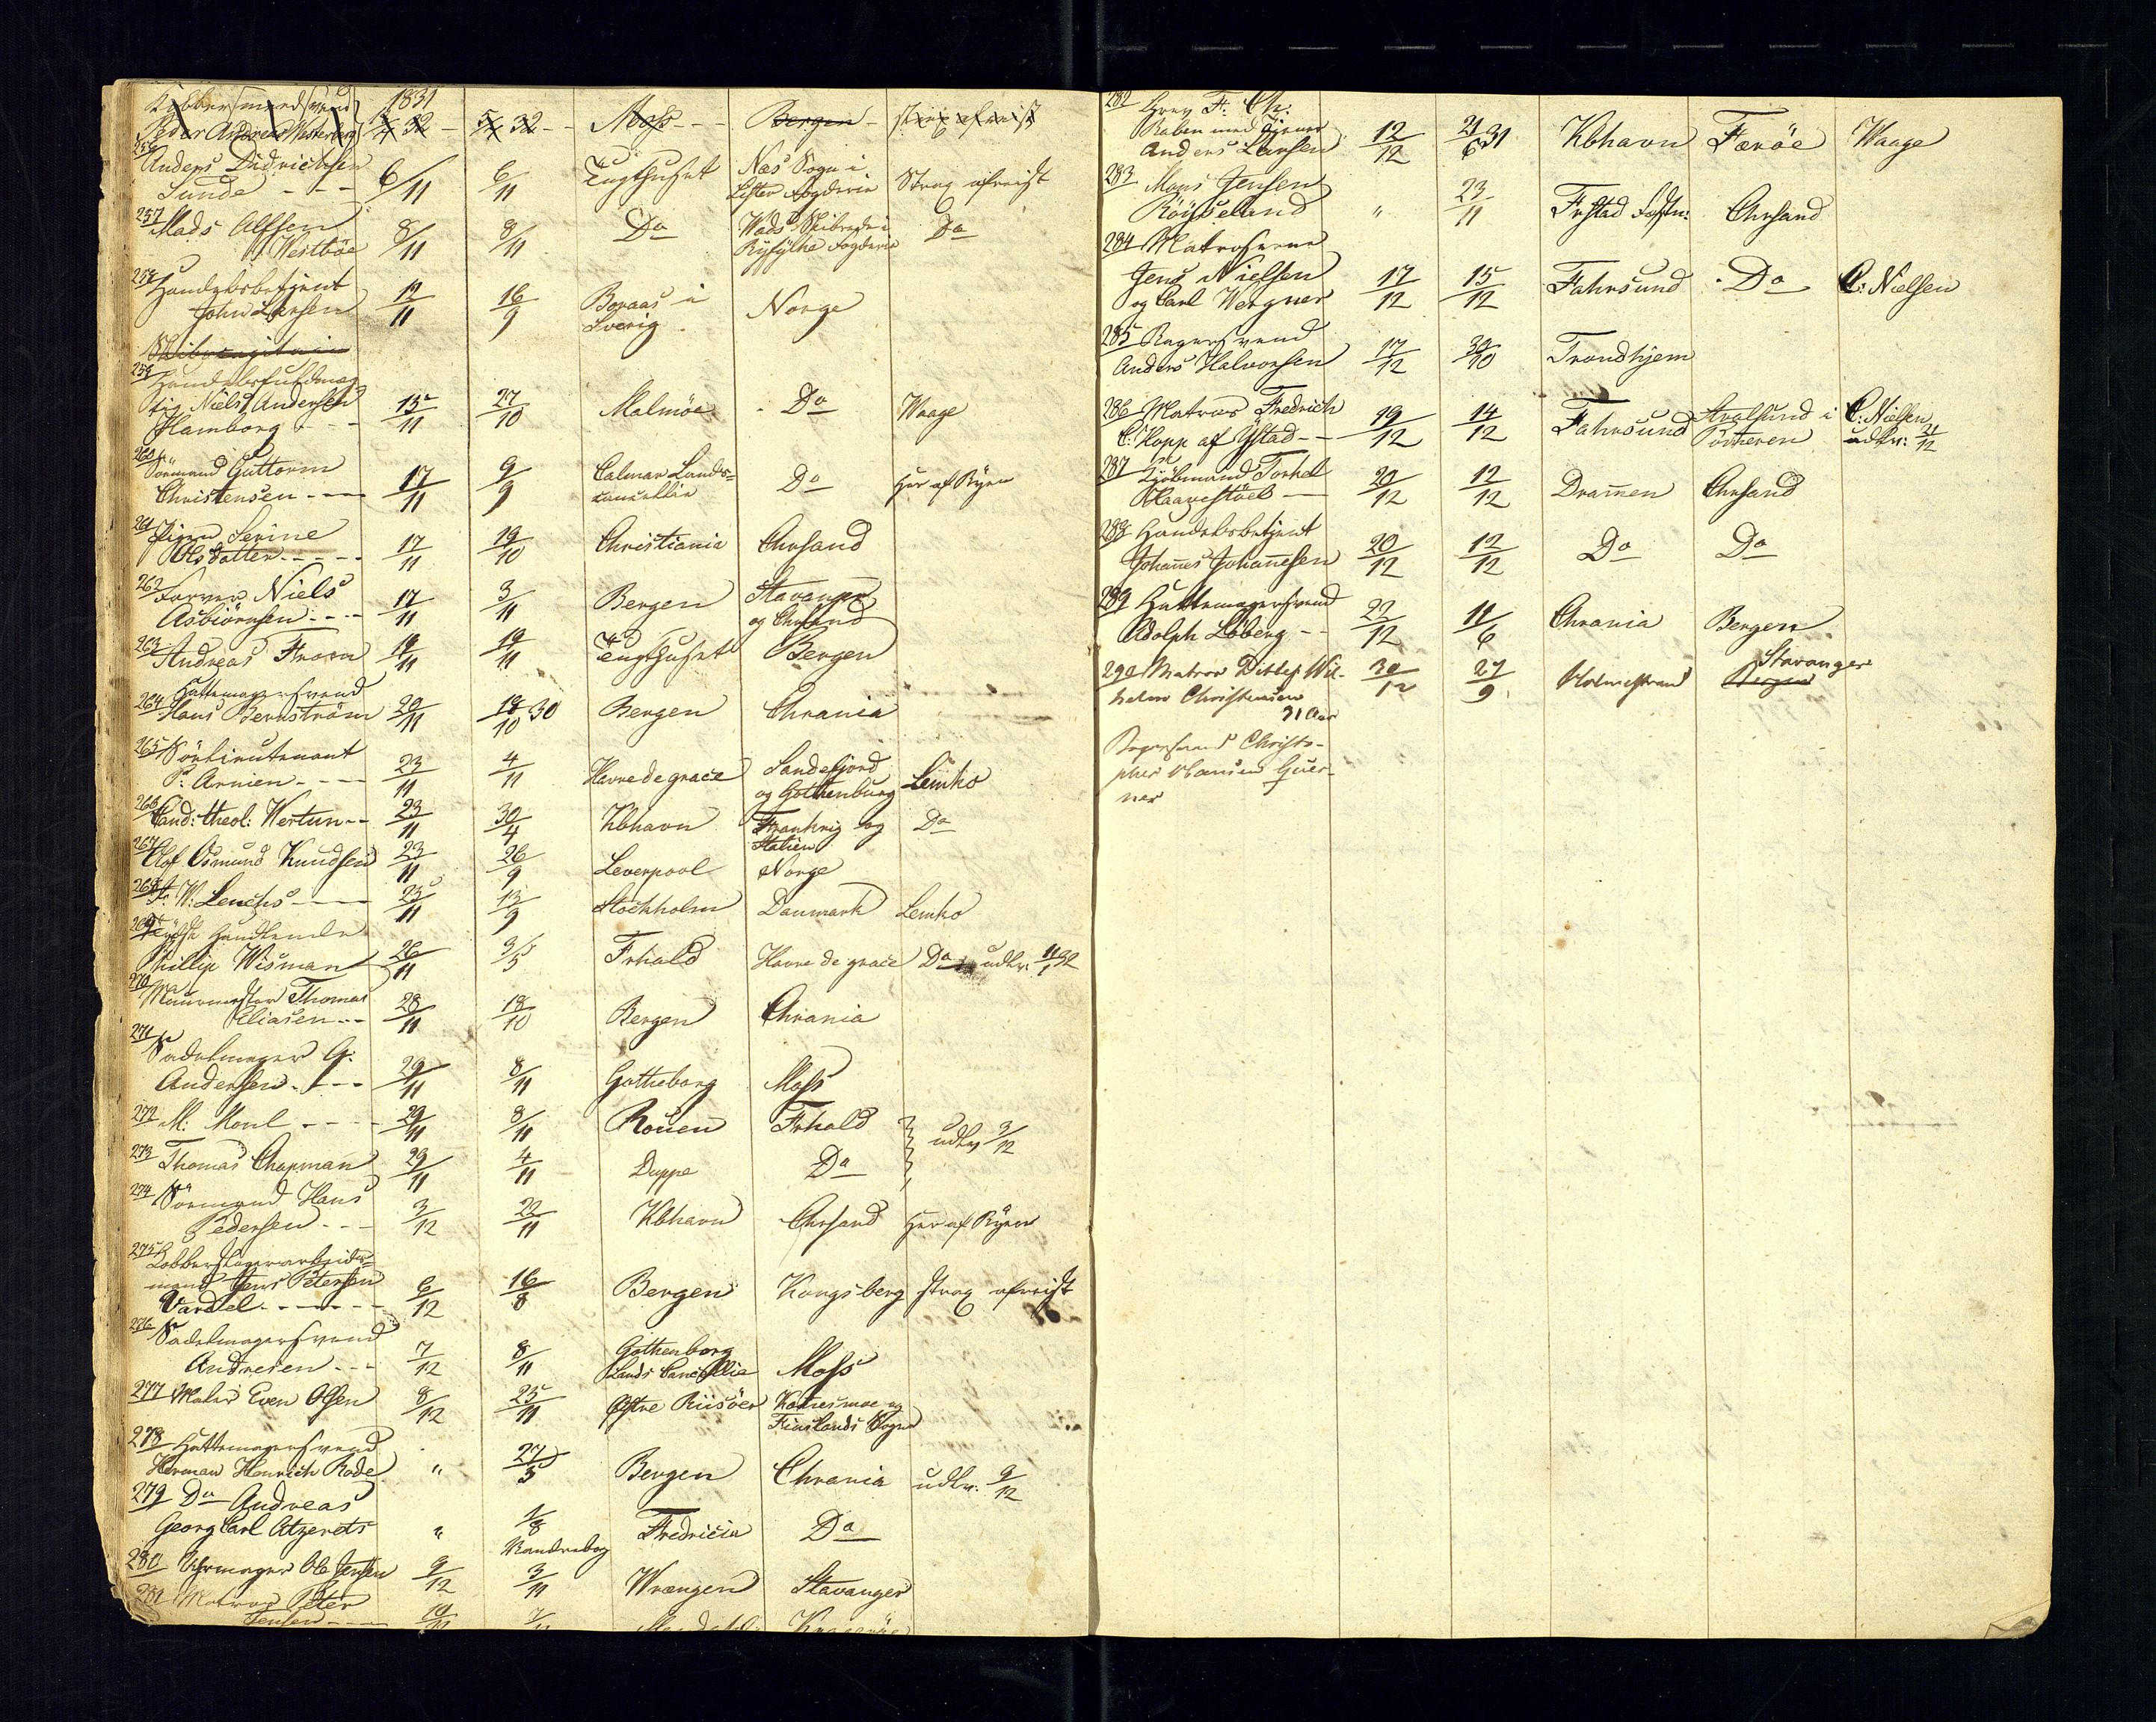 Kobbersmedsvend 1831
Peder Andreas Westerberg 5/4 32 - 5/4 32 - - Moss - - Bergen - strax afreist
256
Anders Didrichsen
Sunde - - - 6/11 6/11 Tugthuset Næs Sogn i Lister Fogderie Strax afreist
257 Mads Alfsen
Westbøe 8/11 8/11 Do Wads Skibrede i Ryfylke Fogderie Do
258 Handelsbetjent
John Larsen 12/11 16/9 Boraas i Sverig Norge
Skibscapitain
259 Handelsfuldmæg
tig Niels Andersen
Hamborg - - - 15/11 27/10 Malmöe Do Waage
260 Sömand Guttorm
Christensen - - - 17/11 9/9 Calmar Lands-cancellie Do Her af Byen
261 Pigen Serine
Olsdatter - - - - 17/11 19/10 Christiania Chrsand
262 Farver Niels
Asbiörnsen - - - 17/11 3/11 Bergen Stavanger og Chrsand
263 Andreas 18/11 18/11 Tugthuset Bergen
264 Hattemagersvend
Hans Bernström 20/11 18/10 30 Bergen Chrania
265 Sölieutenant
P: Arnien - - - - 23/11 4/11 Havre de grace Sandefjord og Gothenburg Lemko
266 Cand: theol: Wertun - - 23/11 30/4 Kbhavn Frankrig og Italien Do
267 Olaf Osmund Knudsen 23/11 26/9 Leverpool Norge
268 Fr. W: Lenchs - - - 25/11 13/9 Stockholm Danmark Lemko
269 Tydsk Handlende
Phillip Wisman 26/11 3/5 Frhald Havre de grace Do udlv: 11/1 32
270 Muurmester Thomas
Eliasen - - - 28/11 18/10 Bergen Chrania
271 Sadelmager G:
Andersen - - - 29/11 8/11 Gotheborg Moss
272 M: Morel - - - - 29/11 8/11 Rouen Frhald
273 Thomas Chapman 29/11 4/11 Dieppe Do udlv 3/12
274 Sömand Hans
Pedersen - - - 3/12 22/11 Kbhavn Chrsand Her af Byen
275 Kobberslagerarbeids-
mand Jens Petersen
Vardel - - - - - - 6/12 16/8 Bergen Kongsberg strax afreist
276 Sadelmagersvend
Andresen - - - 7/12 8/11 Gothenborg Lands Cancellie Moss
277 Maler Even Olsen 8/12 25/11 Østre Riisöer og Finslands Sogn
278 Hattemagersvend
Herman Henrich Rode " 27/5 Bergen Chrania udlv: 9/12
279 Do Andreas
Georg Carl Atzerots " 1/8 Vandrebog Fredricia Do
280 Uhrmager Ole Jensen 9/12 3/11 Wrængen Stavanger
281 Matros Peter
Jensen - - - -
282 Grev F. Ch:
Raben med Tjener
Anders Larsen 12/12 21/6 31 Kbhavn Færöe Waage
283 Mons Jensen
Röysseland " 23/11 Frstad Fæstn: Chrsand
284 Matroserne
Jens Nielsen
og Carl Wergner 17/12 15/12 Fahrsund Do C: Nielsen
285 Bagersvend
Anders Halvorsen 17/12 30/10 Trondhjem
286 Matros Fredrich
C: Hopp af Ystad - - 19/12 14/12 Fahrsund Stralsund i Pomeren C: Nielsen udlv: 21/12
287 Kjöbmand Torkel
Haavestöel - 20/12 12/12 Dramen Chrsand
288 Handelsbetjent
Johannes Johannesen 20/12 12/12 Do Do
289 Hattemagersvend
Adolph Löberg - - 22/12 11/6 Chrania Bergen
290 Matros Ditlef Wil-
helm Christensen 30/12 27/9 Holmestrand Bergen Stavanger
31 Aar
Bagersvend Christo-
pher Hansen Guer-
ner